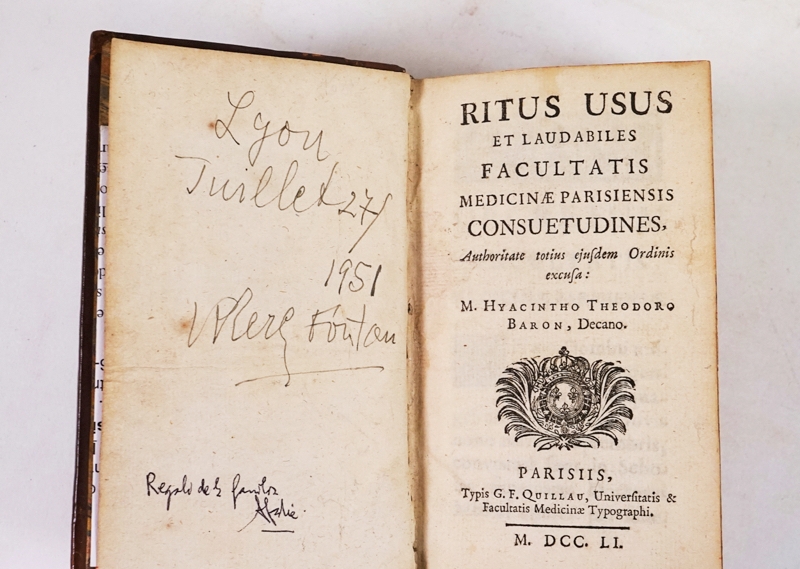 Lyon
Juillet 27
1951
Fontan
Regalo de la familia
RITUS USUS
ET LAUDABILES
FACULTATIS
MEDICINÆ PARISIENSIS
CONSUETUDINES,
Authoritate totius ejuſdem Ordinis
excuſa:
M. HYACINTHO THEODORO
BARON, Decano.
PARISIIS,
Typis G. F. QUILLAU, Univerſitatis &
Facultatis Medicinæ Typographi.
M. DCC. LI.